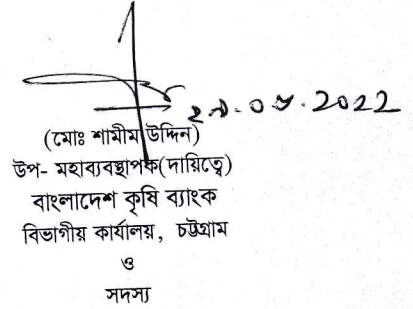 (মোঃ শামীম উদ্দিন)
উপ- মহাব্যবস্থাপক(দায়িত্বে)
বাংলাদেশ কৃষি ব্যাংক
বিভাগীয় কার্যালয়, চট্টগ্রাম
ও
সদস্য